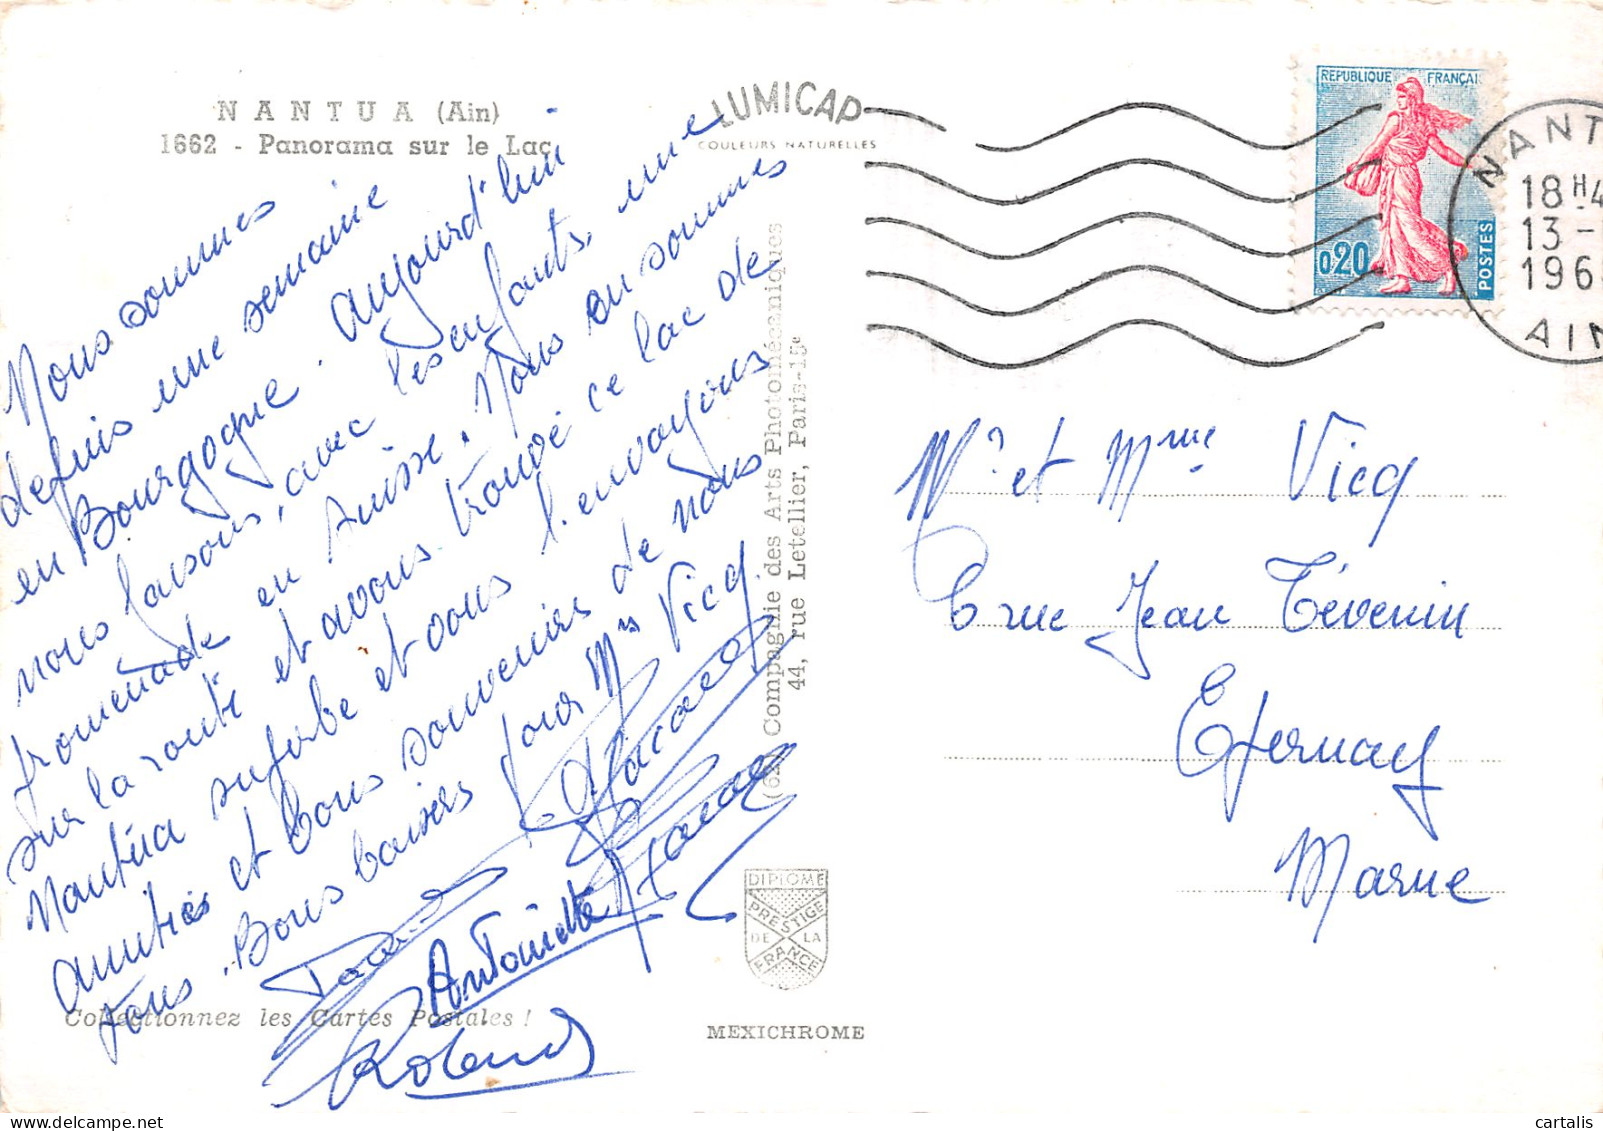 NANTUA (Ain)
1662 - Panorama sur le Lac
LUMICAP
COULEURS NATURELLES
Nous sommes
depuis une semaine
en Bourgogne. Aujourd'hui
nous faisons, avec les enfants, une
promenade en Suisse. Nous en sommes
sur la route et avons trouvé ce lac de
Nantua superbe et vous l'envoyons
amitiés et bons souvenirs de nous
tous. Bons baisers pour Mrs Vicq
Antoinette
Roland
Collectionnez les Cartes Postales !
Compagnie des Arts Photomécaniques
44, rue Letellier, Paris-15e
DIPLOME
PRESTIGE
DE LA
FRANCE
MEXICHROME
REPUBLIQUE FRANÇAI
0,20
POSTES
NANT
18 H 4
13 -
196
AIN
Mr et Mme Vicq
6 rue Jean Tévenin
Epernay
Marne
www.cartalis.com